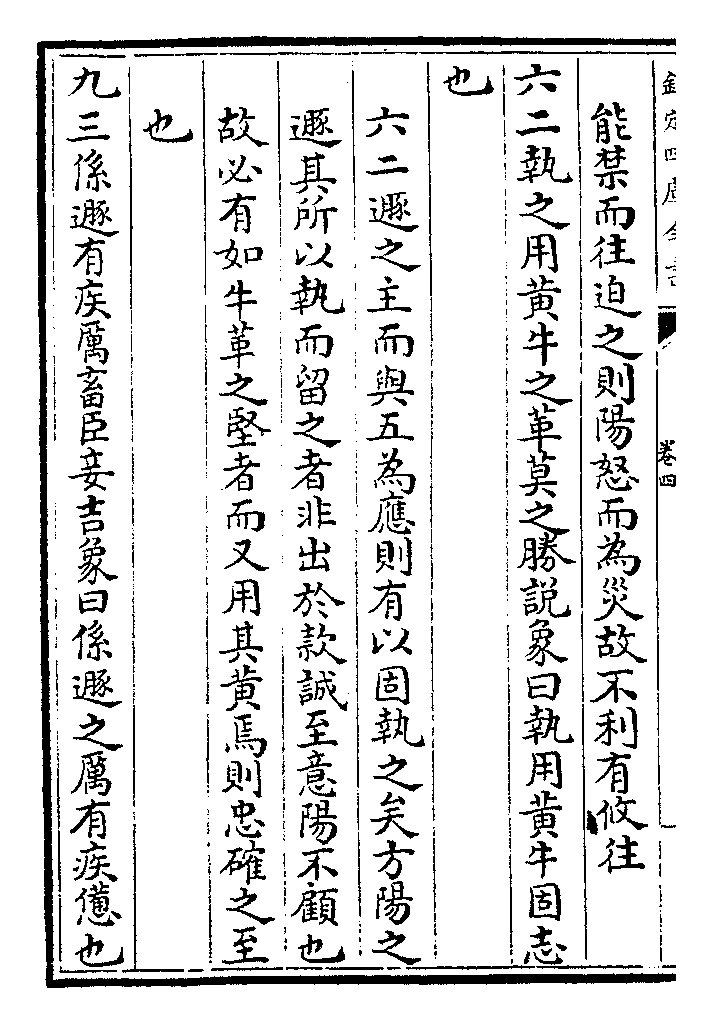 欽定四庫全書
卷四
能禁而往迫之則陽怒而為災故不利有攸往
六二執之用黄牛之革莫之勝説象曰執用黄牛固志
也
六二遯之主而與五為應則有以固執之矣方陽之
遯其所以執而留之者非出於款誠至意陽不顧也
故必有如牛革之堅者而又用其黄焉則忠確之至
也
九三係遯有疾厲畜臣妾吉象曰係遯之厲有疾憊也